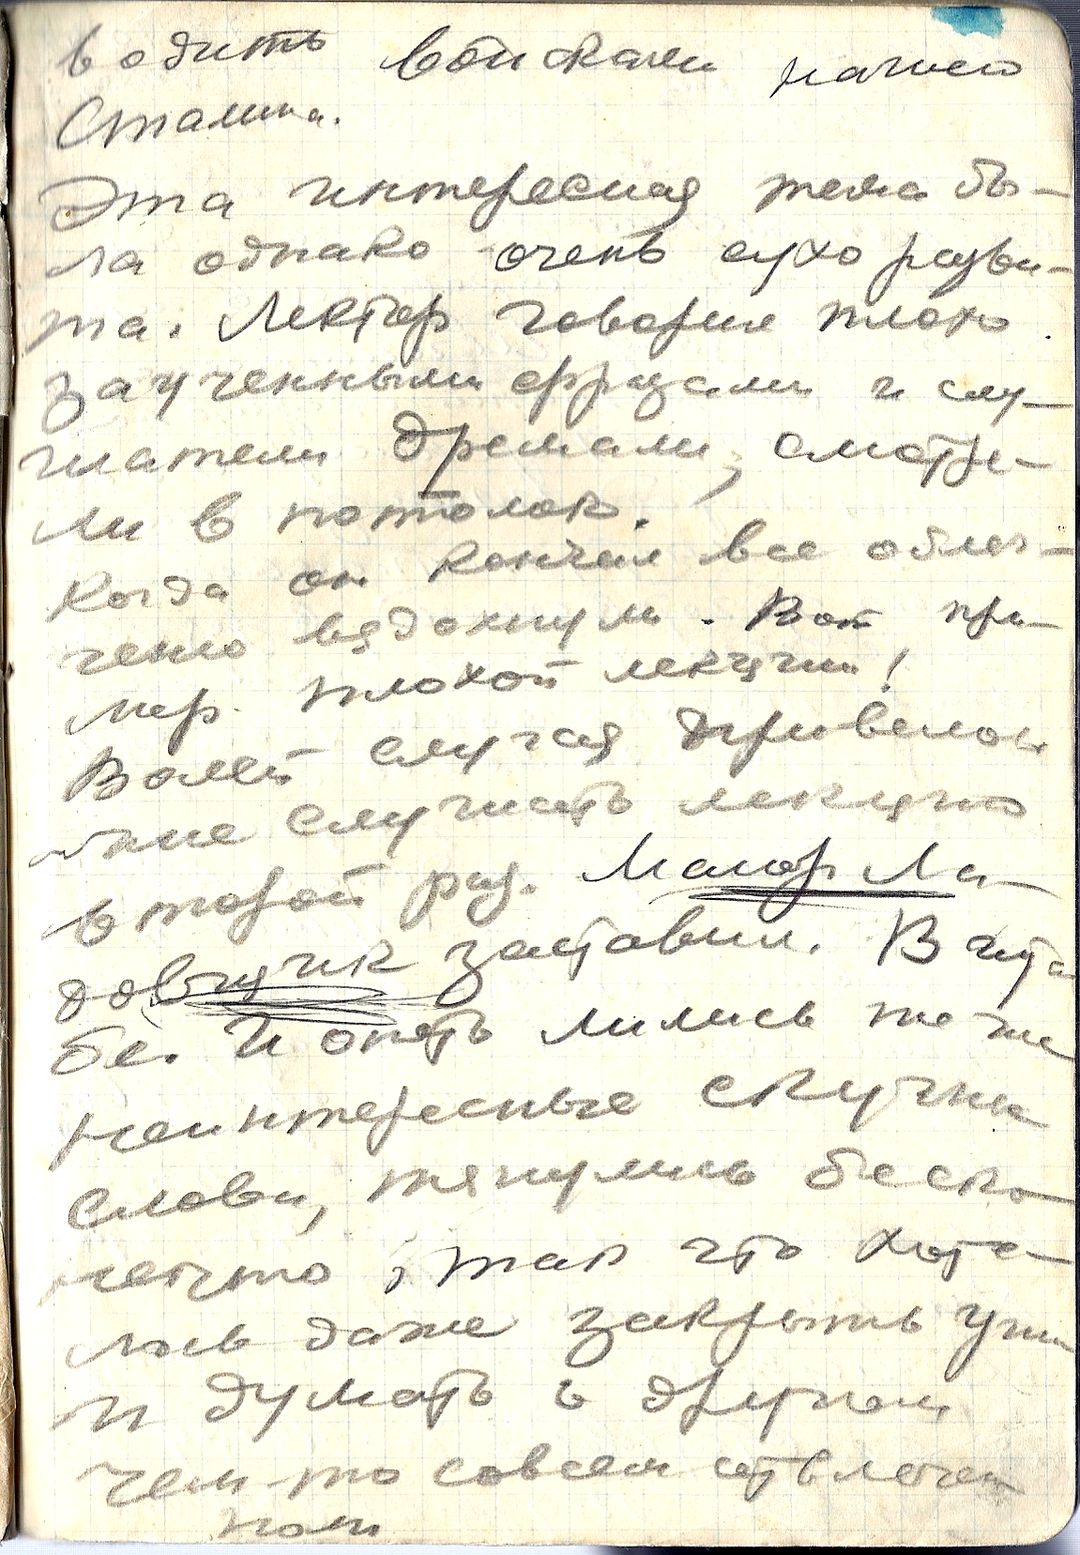 водить войсками нашего
Сталина.
Эта интересная тема бы-
ла однако очень сухо разви-
та. Лектор говорил плохо
заученными фразами и слу-
шатели дремали, смотре-
ли в потолок.
Когда он кончил все облег-
ченно вздохнули. Вот при-
мер плохой лекции!
Волей случая привелось
мне слушать лекцию
второй раз. Майор Ла-
довщик заставил. В шта
бе. И опять лились те же
неинтересные скучные
слова, тянулись беско-
нечно, так что хоте-
лось даже закрыть уши
и думать о другом
чем-то совсем отвлечен
ном